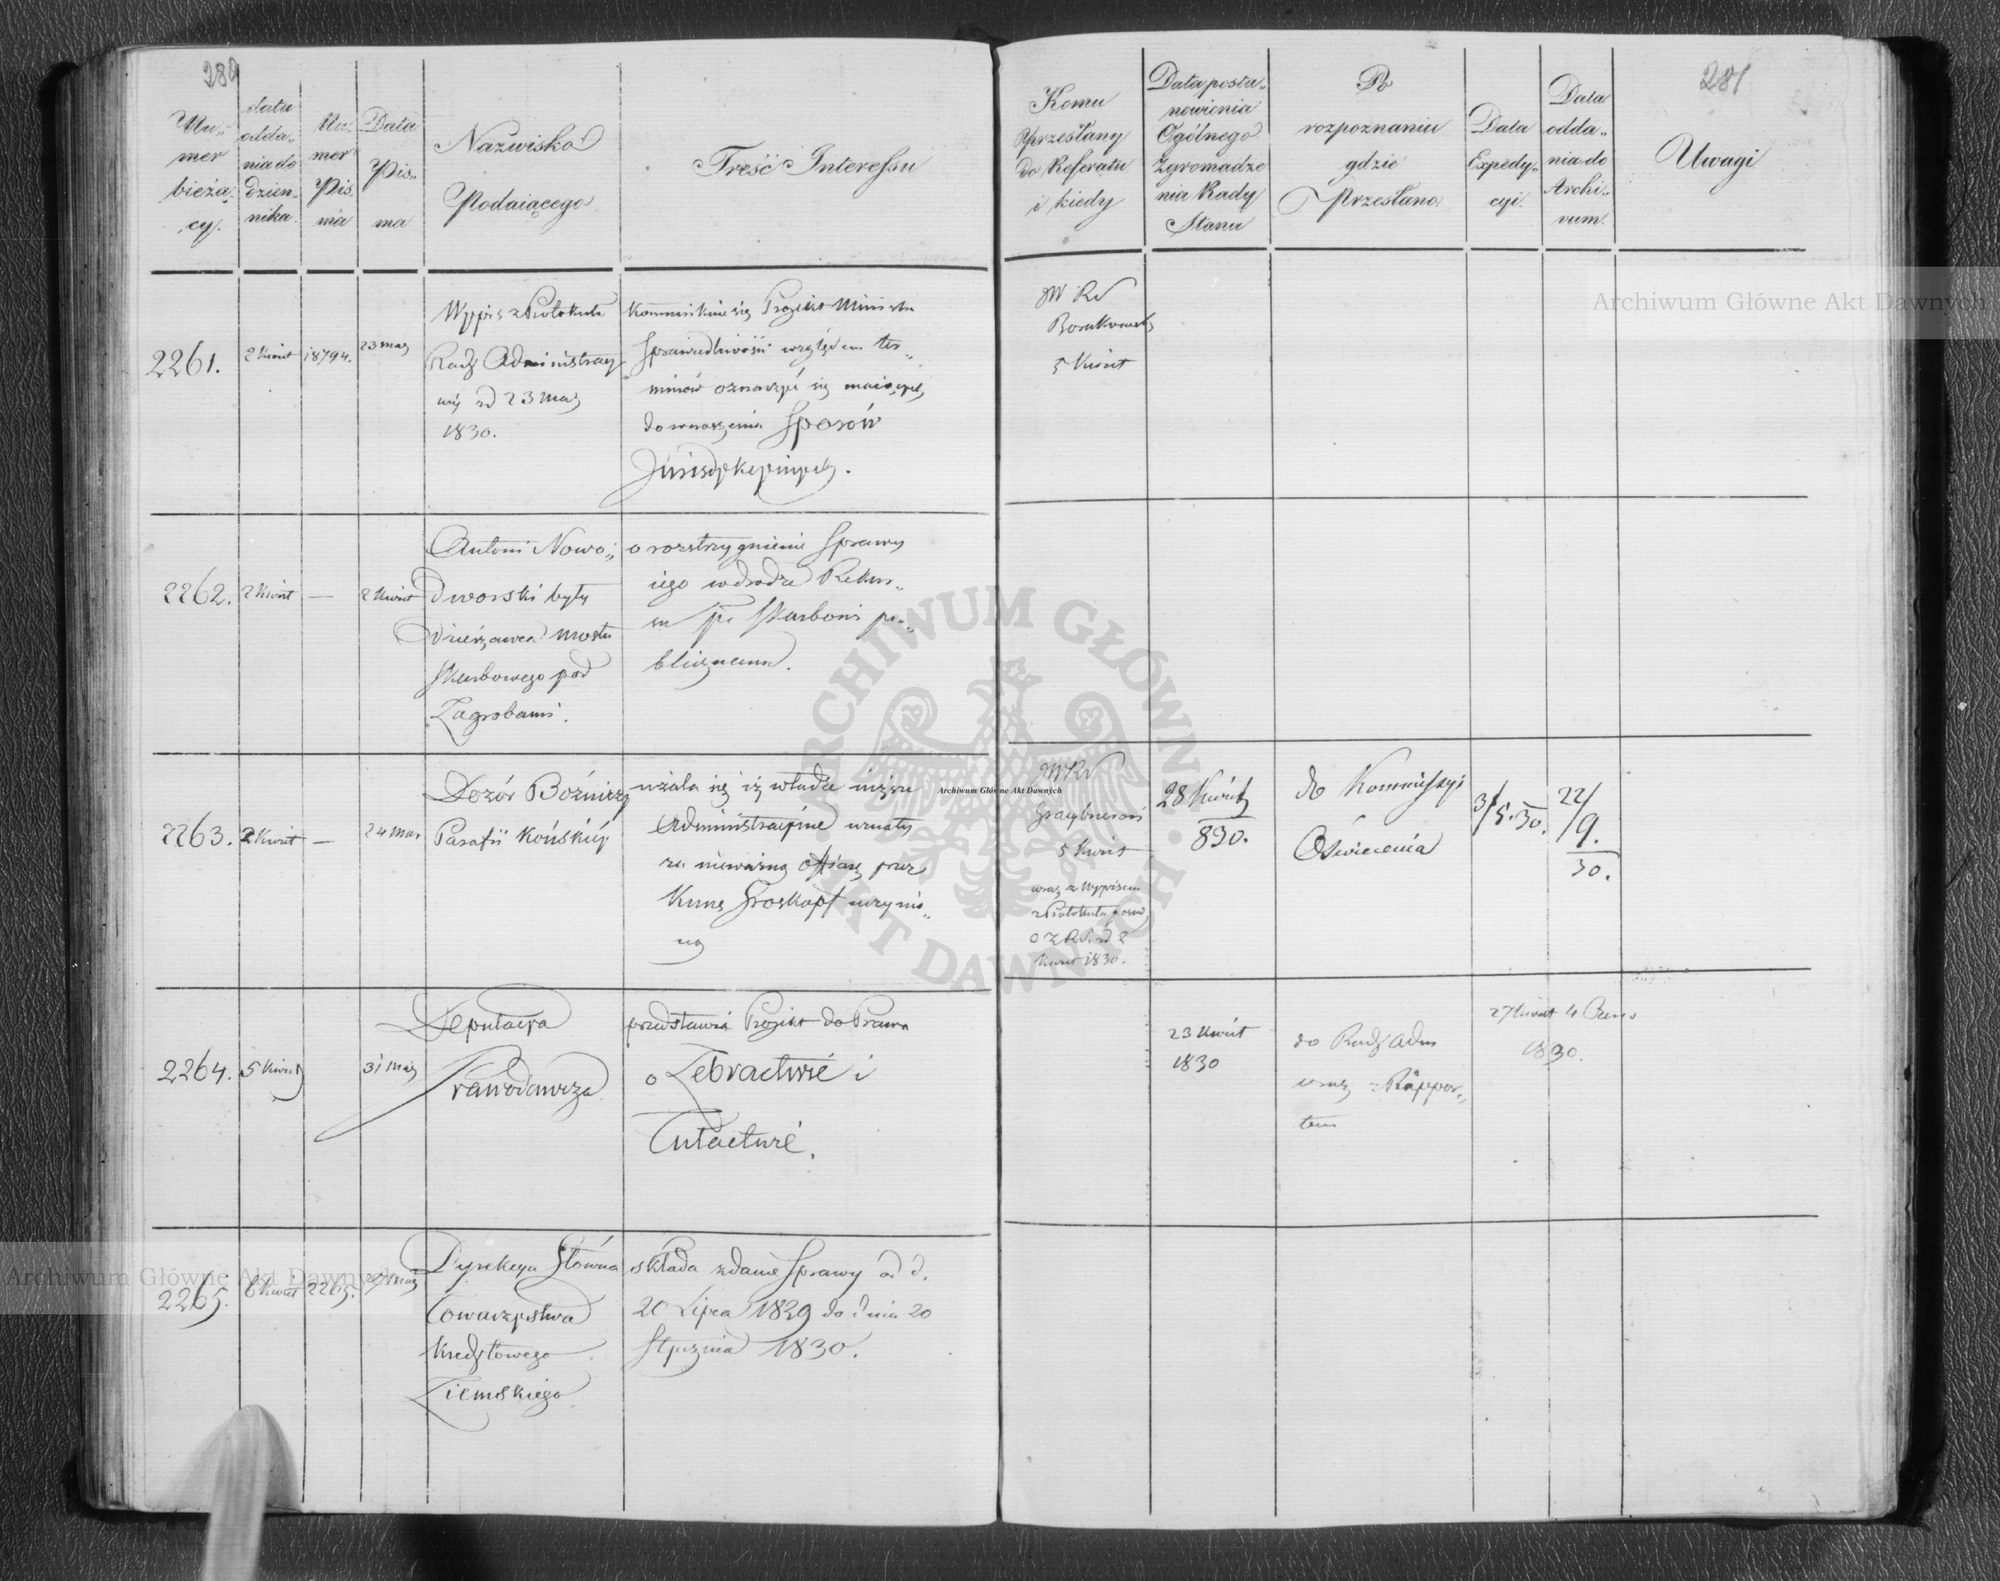 280
Nu-
mer
bieżą-
cy.
data
odda-
nia do
dzien-
nika.
Nu-
mer
Pis-
ma
Data
Pis-
ma
Nazwisko
Podaiącego
Treść Interessu
2261.
2 Kwiet
18794.
23 Mar
Wypis z Protokułu
Rady Administracy
1830.
Projekt Ministra
Sprawiedliwości względem ter-
minów oznaczyć się maiących
do wnoszenia Sporów
Jurisdykcyinych.
2262.
2 Kwiet
—
2 Kwiet
Antoni Nowo-
Dworski były
Dzierżawca mostu
Skarbowego pod
Zagrobami.
o rozstrzygnienie Sprawy
iego w drodze Rekur-
su Skarbowi pu-
blicznemu.
2263.
2 Kwiet
—
24 Mar
Dozór Bożniczy
Parafii Końskiéy
użala się iż władze niższe
Administracyine uznały
za nieważną ofiarę przez
Kunę Groskopf uczynio-
ną
2264.
5 Kwiet
31 Mar
Deputacya
Prawodawcza
przedstawia Projekt do Prawa
o Żebractwie i
Tułactwie.
2265.
6 Kwiet
Dyrekcya Główna
Towarzystwa
Kredytowego
Ziemskiego
składa zdanie Sprawy od d.
20 Lipca 1829 do dnia 20
Stycznia 1830.
281
Komu
przesłany
do Referatu
i kiedy
Data posta-
nowienia
Ogólnego
Zgromadze
nia Rady
Stanu
Po
rozpoznaniu
gdzie
Przesłano
Data
Expedy-
cyi.
Data
odda-
nia do
Archi-
vum.
Uwagi
JW RS
5 Kwiet
JW RS
5 Kwiet
wraz z Wypisem
z Protokułu
Kwiet 1830.
28 Kwiet
830.
do Kommissyi
Oświecenia
3/5.30.
22/9.
30.
23 Kwiet
1830
do Rady Adm
wraz z Rappor-
tem
27 Kwiet 4 Czerw
1830.
Archiwum Główne Akt Dawnych
Archiwum Główne Akt Dawnych
Archiwum Główne Akt Dawnych
ARCHIWUM GŁÓWNE AKT DAWNYCH